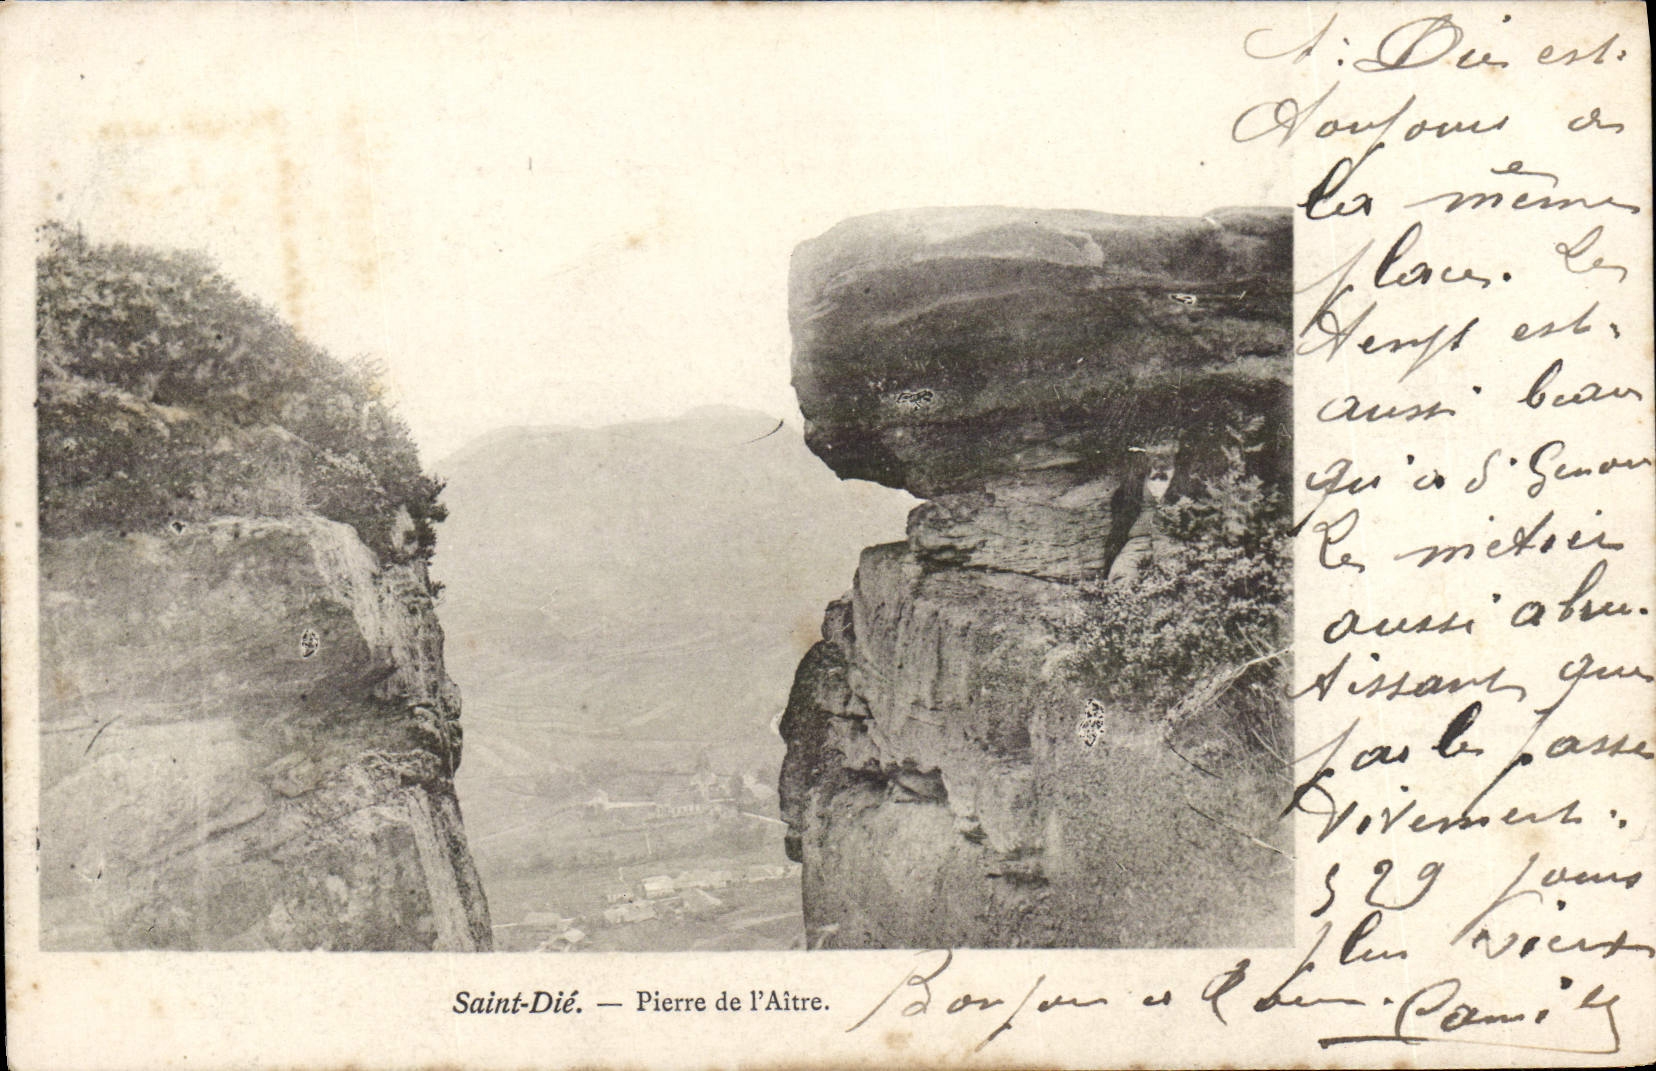 St Dié est
toujours à
la même
place. Le
temps est
aussi beau
qu'à St Genou
Le métier
aussi abru-
tissant que
par le passé
vivement
529 jours
plus vieux
Bonjour à tous. Camille
Saint-Dié. — Pierre de l'Aître.